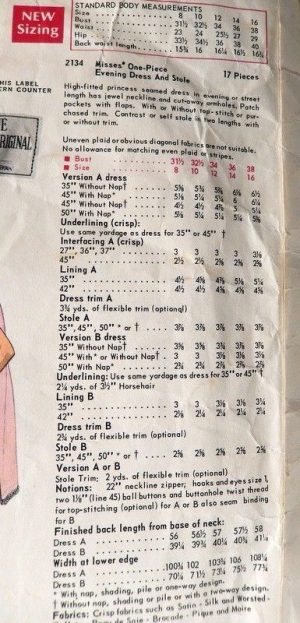 NEW
Sizing
STANDARD BODY MEASUREMENTS
Size 8 10 12 14 16
Bust 31½ 32½ 34 36 38
Waist 23 24 25½ 27 29
Hip 33½ 34½ 36 38 40
Back waist length 15¾ 16 16¼ 16½ 16¾
THIS LABEL
PATTERN COUNTER
ORIGINAL
2134 Misses' One-Piece
Evening Dress And Stole 17 Pieces
High-fitted princess seamed dress in evening or street
length has jewel neckline and cut-away armholes. Patch
pockets with flaps. With or Without top-stitch or pur-
chased trim. Contrast or self stole in two lengths with
or without trim.
Uneven plaid or obvious diagonal fabrics are not suitable.
No allowance for matching even plaid or stripes.
Bust 31½ 32½ 34 36 38
Size 8 10 12 14 16
Version A dress
35" Without Nap†
45" With Nap*
45" Without Nap†
50" With Nap*
Underlining (crisp):
Use same yardage as dress for 35" or 45" †
Interfacing A (crisp)
27", 36", 37" 3 3 3 3 3⅛
45"
Lining A
35"
42"
Dress trim A
3¾ yds. of flexible trim (optional)
Stole A
35", 45", 50" * or † 3⅞ 3⅞ 3⅞ 3⅞ 3⅞
Version B dress
35" Without Nap†
45" With * or Without Nap†
50" With Nap*
Underlining: Use same yardage as dress for 35" or 45" †
2¼ yds. of 3½" Horsehair
Lining B
35" 3 3 3⅛ 3⅛ 3¼
42"
Dress trim B
2¼ yds. of flexible trim (optional)
Stole B
35", 45", 50" * or † 2⅝ 2⅝ 2⅝ 2⅝ 2⅝
Version A or B
Stole Trim: 2 yds. of flexible trim (optional)
Notions: 22" neckline zipper; hooks and eyes size 1,
two 1⅛" (line 45) ball buttons and buttonhole twist thread
for top-stitching (optional) for A or B also seam binding
for B
Finished back length from base of neck:
Dress A 56 56½ 57 57½ 58
Dress B 39¼ 39¾ 40¼ 40¾ 41¼
Width at lower edge
Dress A 100¾ 102 103¾ 106 108¼
Dress B 70¼ 71½ 73¼ 75½ 77¾
* With nap, shading, pile or one-way design.
† Without nap, shading or pile or with a two-way design.
Fabrics: Crisp fabrics such as Satin - Silk and Worsted -
Peau de Soie - Brocade - Pique and Moire